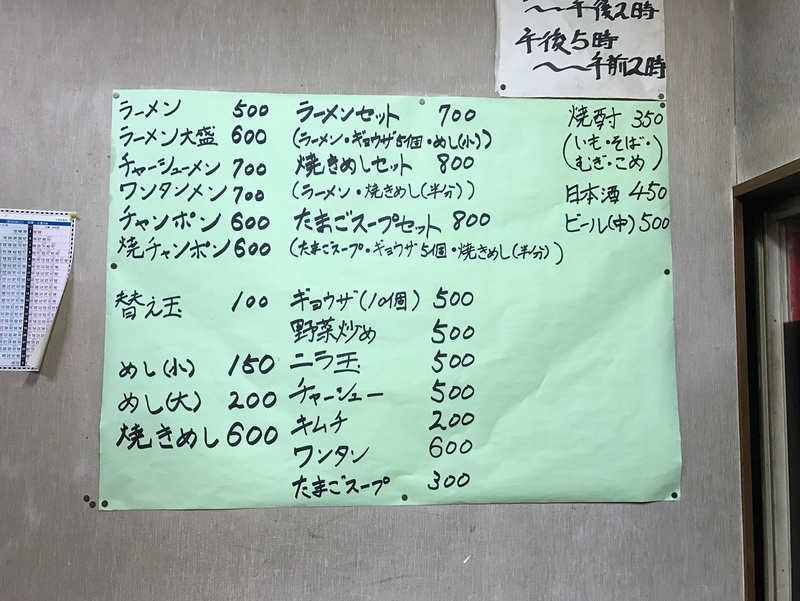 ～～午後2時
午後5時
～～午前2時
ラーメン 500
ラーメン大盛 600
チャーシューメン 700
ワンタンメン 700
チャンポン 600
焼チャンポン 600
替え玉 100
めし(小) 150
めし(大) 200
焼きめし 600
ラーメンセット 700
(ラーメン・ギョウザ5個・めし(小))
焼きめしセット 800
(ラーメン・焼きめし(半分))
たまごスープセット 800
(たまごスープ・ギョウザ5個・焼きめし(半分))
ギョウザ(10個) 500
野菜炒め 500
ニラ玉 500
チャーシュー 500
キムチ 200
ワンタン 600
たまごスープ 300
焼酎 350
(いも・そば・
むぎ・こめ)
日本酒 450
ビール(中) 500